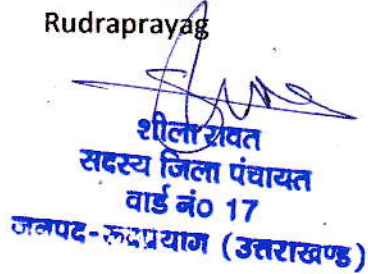 Rudraprayag
शीला रावत
सदस्य जिला पंचायत
वार्ड नं० 17
जनपद-रूद्रप्रयाग (उत्तराखण्ड)